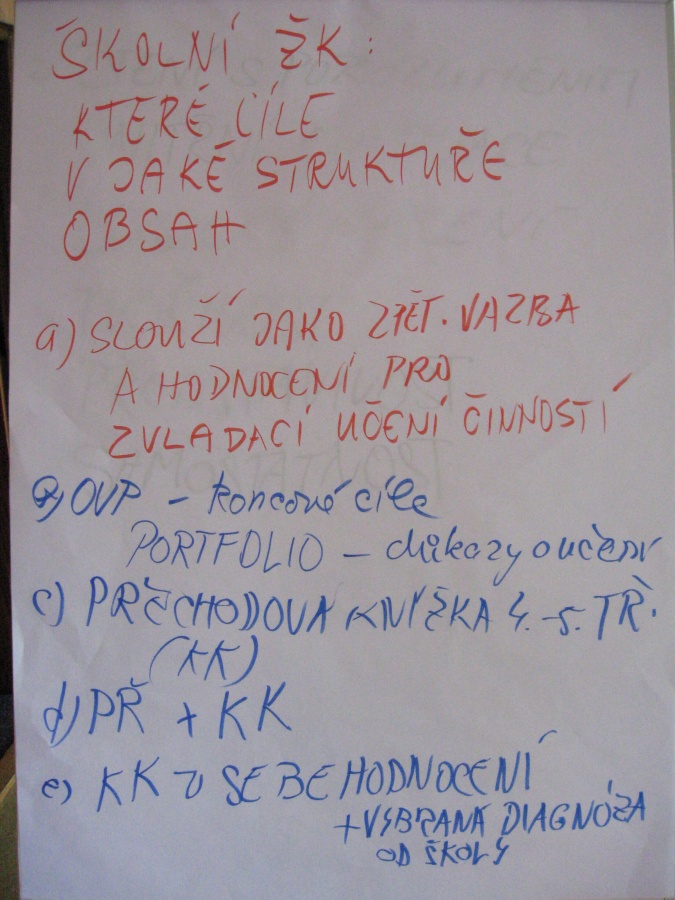 ŠKOLNÍ ŽK:
KTERÉ CÍLE
V JAKÉ STRUKTUŘE
OBSAH
a) SLOUŽÍ JAKO ZPĚT. VAZBA
A HODNOCENÍ PRO
ZVLADACÍ UČENÍ ČINNOSTÍ
OVP – koncové cíle
PORTFOLIO – důkazy o učení
c) PŘECHODOVÁ KNÍŽKA 4.-5. TŘ.
(KK)
d) PŘ + KK
e) KK SEBEHODNOCENÍ
+ VYBRANÁ DIAGNÓZA
OD ŠKOLY